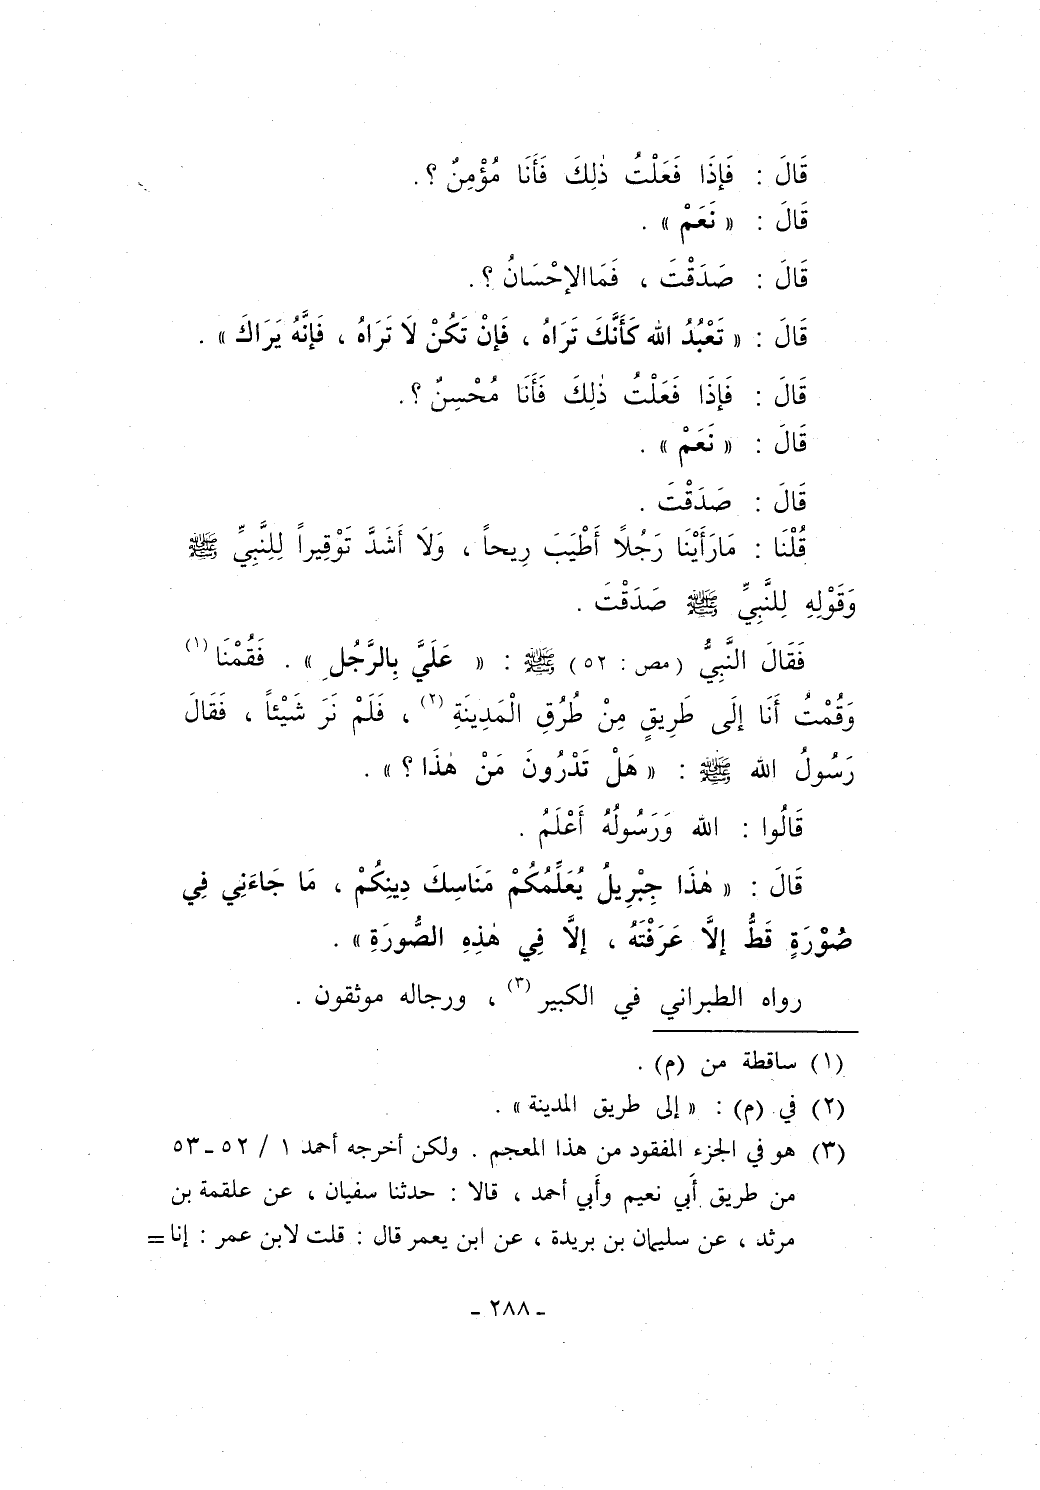 قَالَ : فَإِذَا فَعَلْتُ ذٰلِكَ فَأَنَا مُؤْمِنٌ ؟.
قَالَ : « نَعَمْ » .
قَالَ : صَدَقْتَ ، فَمَا الإِحْسَانُ ؟.
قَالَ : « تَعْبُدُ الله كَأَنَّكَ تَرَاهُ ، فَإِنْ تَكُنْ لَا تَرَاهُ ، فَإِنَّهُ يَرَاكَ » .
قَالَ : فَإِذَا فَعَلْتُ ذٰلِكَ فَأَنَا مُحْسِنٌ ؟.
قَالَ : « نَعَمْ » .
قَالَ : صَدَقْتَ .
قُلْنَا : مَارَأَيْنَا رَجُلًا أَطْيَبَ رِيحاً ، وَلَا أَشَدَّ تَوْقِيراً لِلنَّبِيِّ ﷺ
وَقَوْلِهِ لِلنَّبِيِّ ﷺ صَدَقْتَ .
فَقَالَ النَّبِيُّ (مص : ٥٢) ﷺ : « عَلَيَّ بِالرَّجُلِ » . فَقُمْنَا (١)
وَقُمْتُ أَنَا إِلَى طَرِيقٍ مِنْ طُرُقِ الْمَدِينَةِ (٢) ، فَلَمْ نَرَ شَيْئاً ، فَقَالَ
رَسُولُ الله ﷺ : « هَلْ تَدْرُونَ مَنْ هٰذَا ؟ » .
قَالُوا : الله وَرَسُولُهُ أَعْلَمُ .
قَالَ : « هٰذَا جِبْرِيلُ يُعَلِّمُكُمْ مَنَاسِكَ دِينِكُمْ ، مَا جَاءَنِي فِي
صُوْرَةٍ قَطُّ إِلَّا عَرَفْتَهُ ، إِلَّا فِي هٰذِهِ الصُّورَةِ » .
رواه الطبراني في الكبير (٣) ، ورجاله موثقون .
(١) ساقطة من (م) .
(٢) في (م) : « إلى طريق المدينة » .
(٣) هو في الجزء المفقود من هذا المعجم . ولكن أخرجه أحمد ١ / ٥٢ ـ ٥٣
من طريق أبي نعيم وأبي أحمد ، قالا : حدثنا سفيان ، عن علقمة بن
مرثد ، عن سليمان بن بريدة ، عن ابن يعمر قال : قلت لابن عمر : إنا =
ـ ٢٨٨ ـ